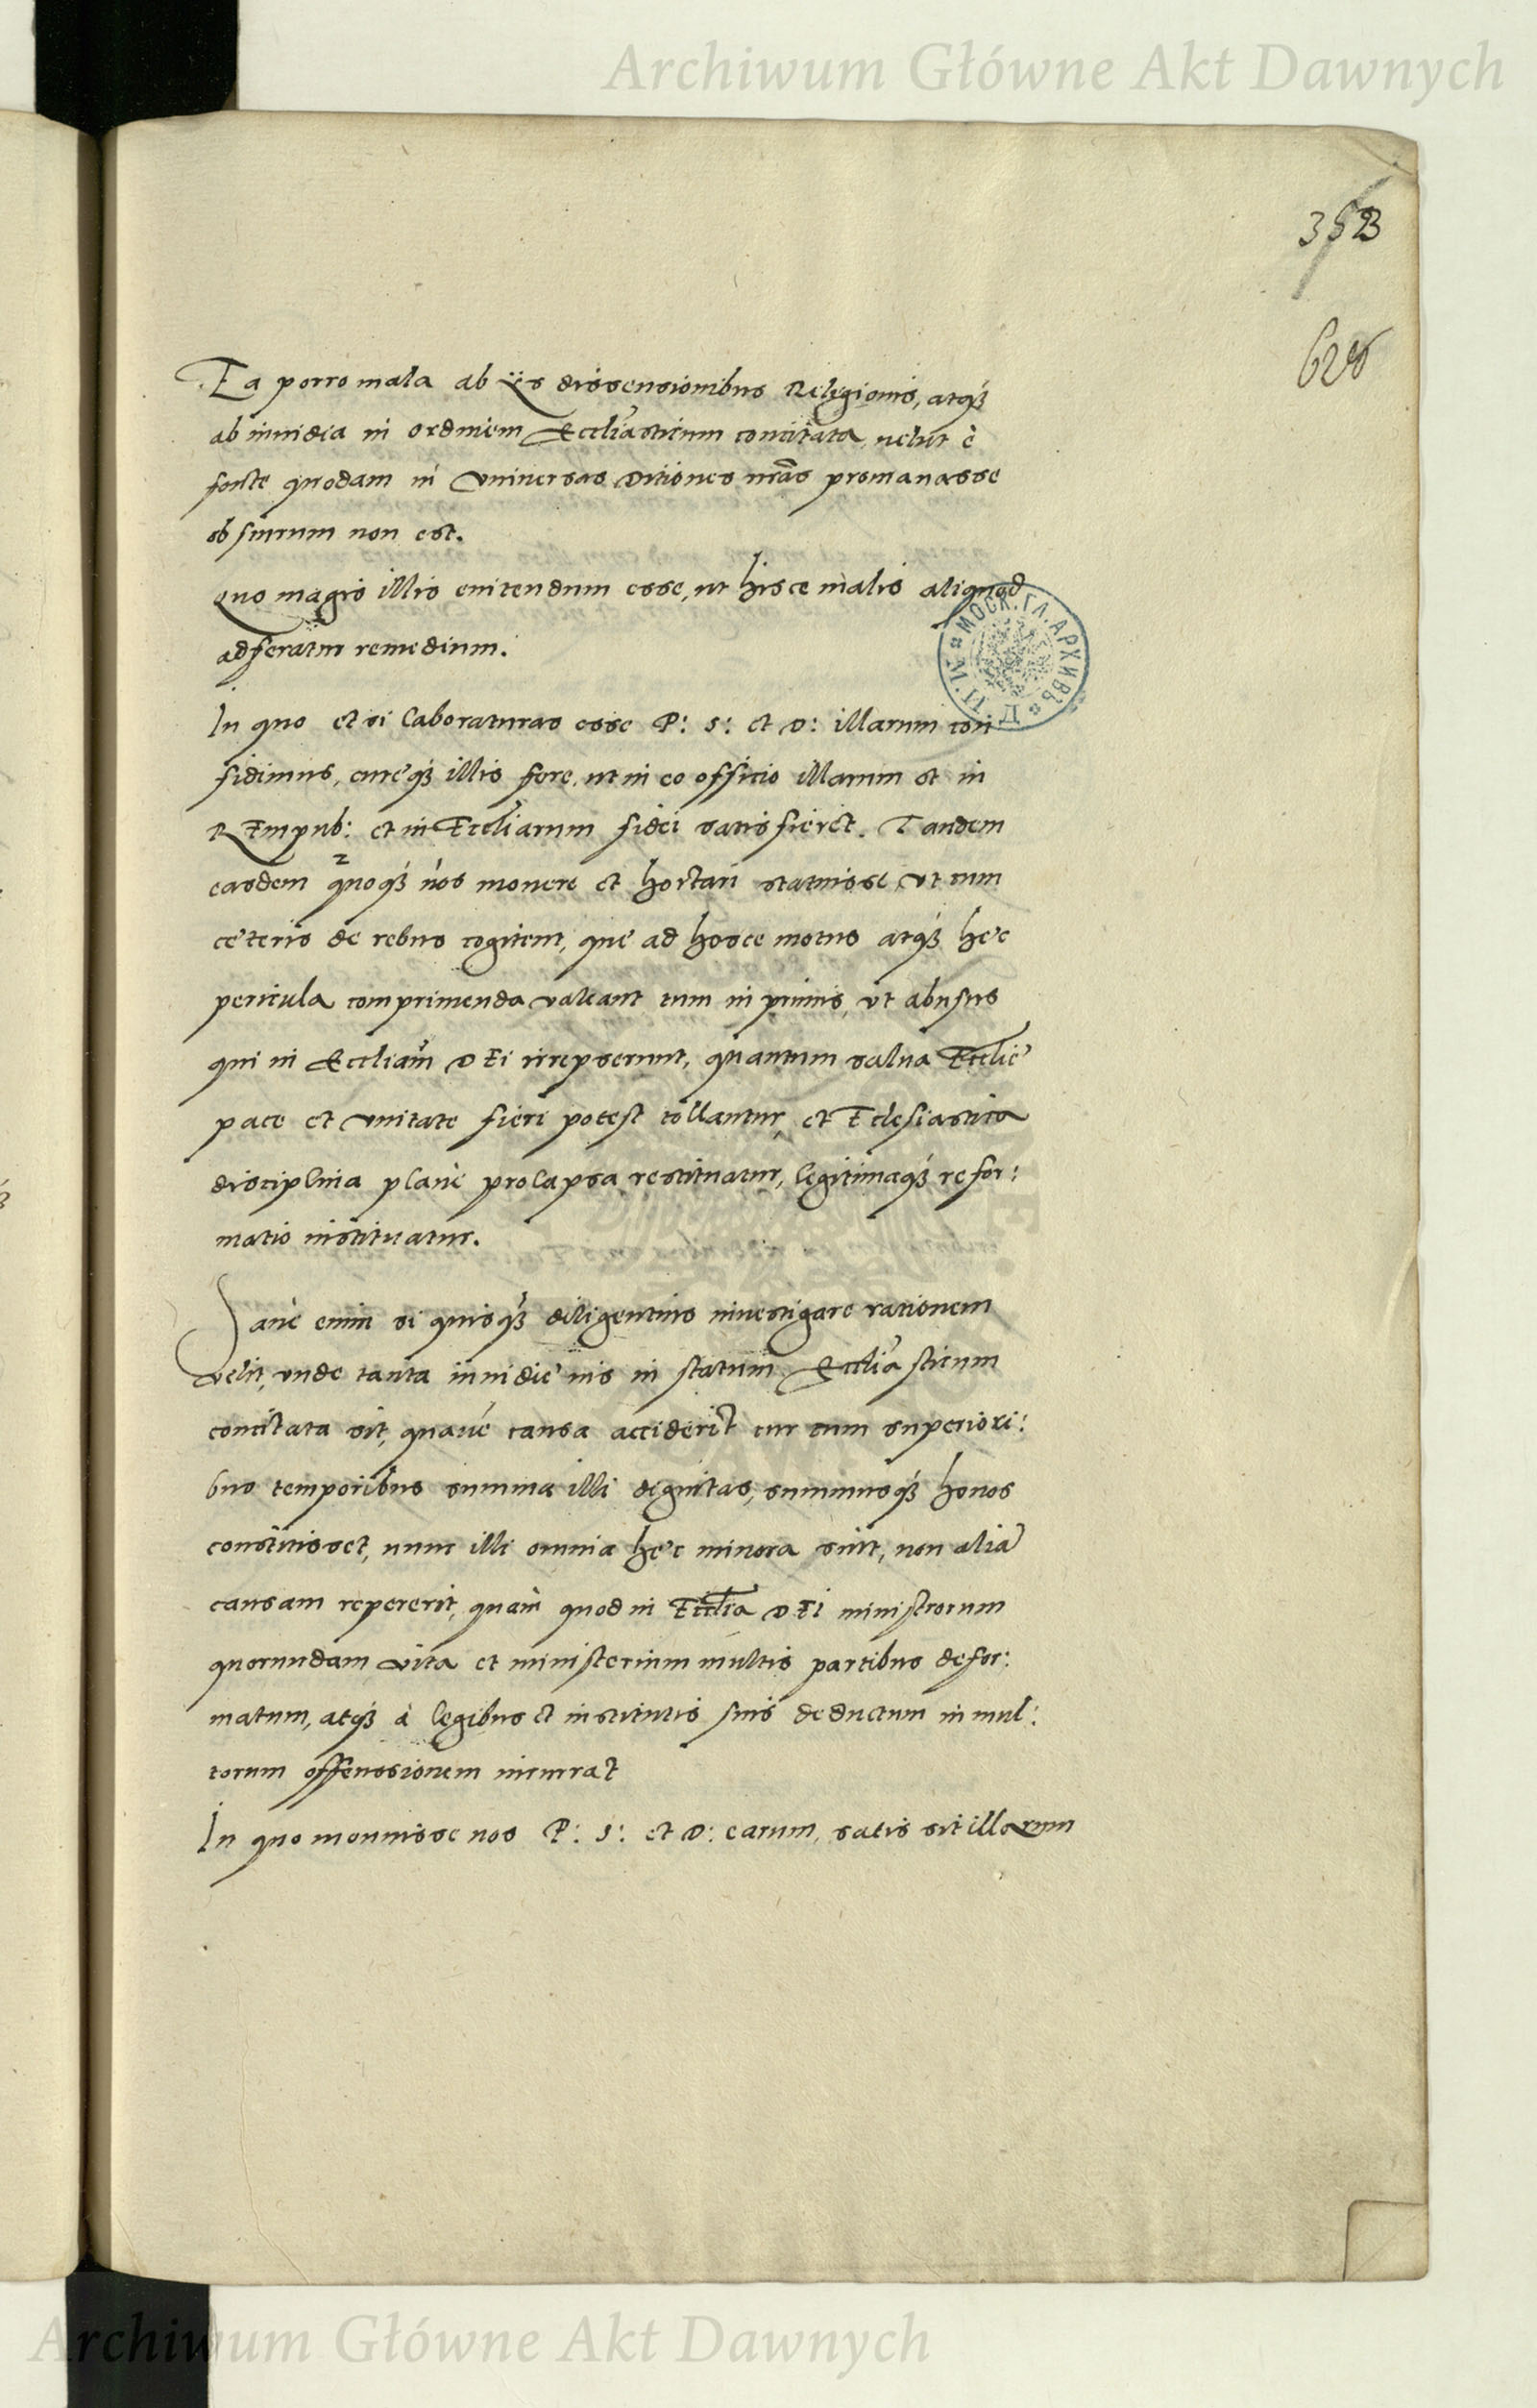 Archiwum Główne Akt Dawnych
353
Ea porro mala ab ijs dissensionibus Religionis, atq3
ab inuidia in ordinem Eccliasticum concitata, uelut è
fonte quodam in Vniuersas Ditiones nras promanasse
obscurum non est.
Quo magis illis enitendum esse, ut hisce malis aliquod
adferatur remedium.
МОСК. ГЛ. АРХИВЪ
In quo etsi laboraturas esse P: S: et D: illarum con
fidimus, curęq3 illis fore, ut in eo officio illarum et in
REmpub: et in Eccliarum fidei satisfieret. Tandem
easdem quoq3 nos monere et hortari statuisse, ut cum
cęteris de rebus cogitent, quę ad hosce motus atq3 hęc
pericula comprimenda valeant tum in primis, ut abusus
qui in Eccliam DEi irrepserunt, quantum salua Ecclię
pace et vnitate fieri potest tollantur, et Eclesiastica
disciplina planè prolapsa restituatur, legitimaq3 refor:
matio instituatur.
Sanè enim si quisq3 diligentius inuestigare rationem
velit, vnde tanta inuidię uis in statum Eccliasticum
concitata sit, quaue causa acciderit cur cum superiori:
bus temporibus summa illi dignitas, summusq3 honos
constitisset, nunc illi omnia hęc minora sint, non aliā
causam repererit, quàm quod in Ecclia DEi ministrorum
quorundam vita et ministerium multis partibus defor:
matum, atq3 à legibus et institutis suis deductum in mul:
torum offensionem incurrat
In quo monuisse nos P: S: et D: earum, satis sit illarum
Archiwum Główne Akt Dawnych